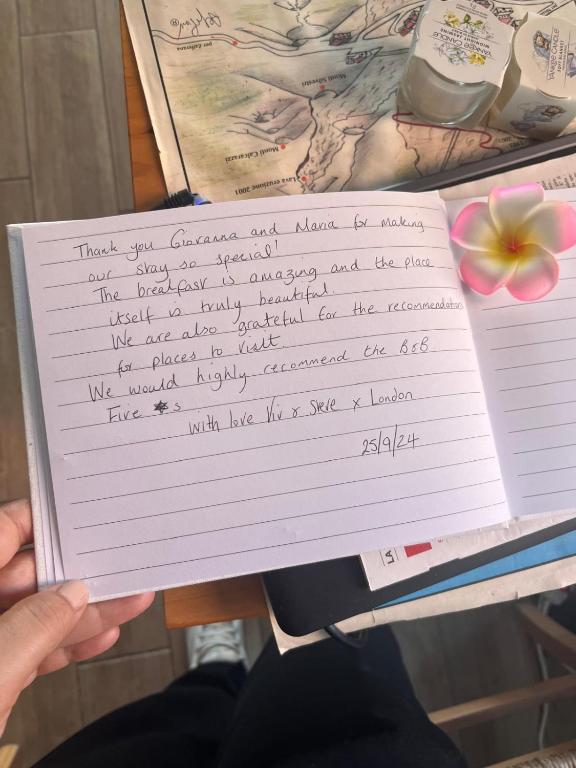 per Zafferana
YANKEE CANDLE
MIDNIGHT JASMINE
YANKEE CANDLE
Monti Silvestri
Monti Calcarazzi
Lava eruzione 2001
Thank you Giovanna and Maria for making
our stay so special!
The breakfast is amazing and the place
itself is truly beautiful.
We are also grateful for the recommendations
for places to visit.
We would highly recommend the B&B
Five ★s
With love Viv & Steve x London
25/9/24